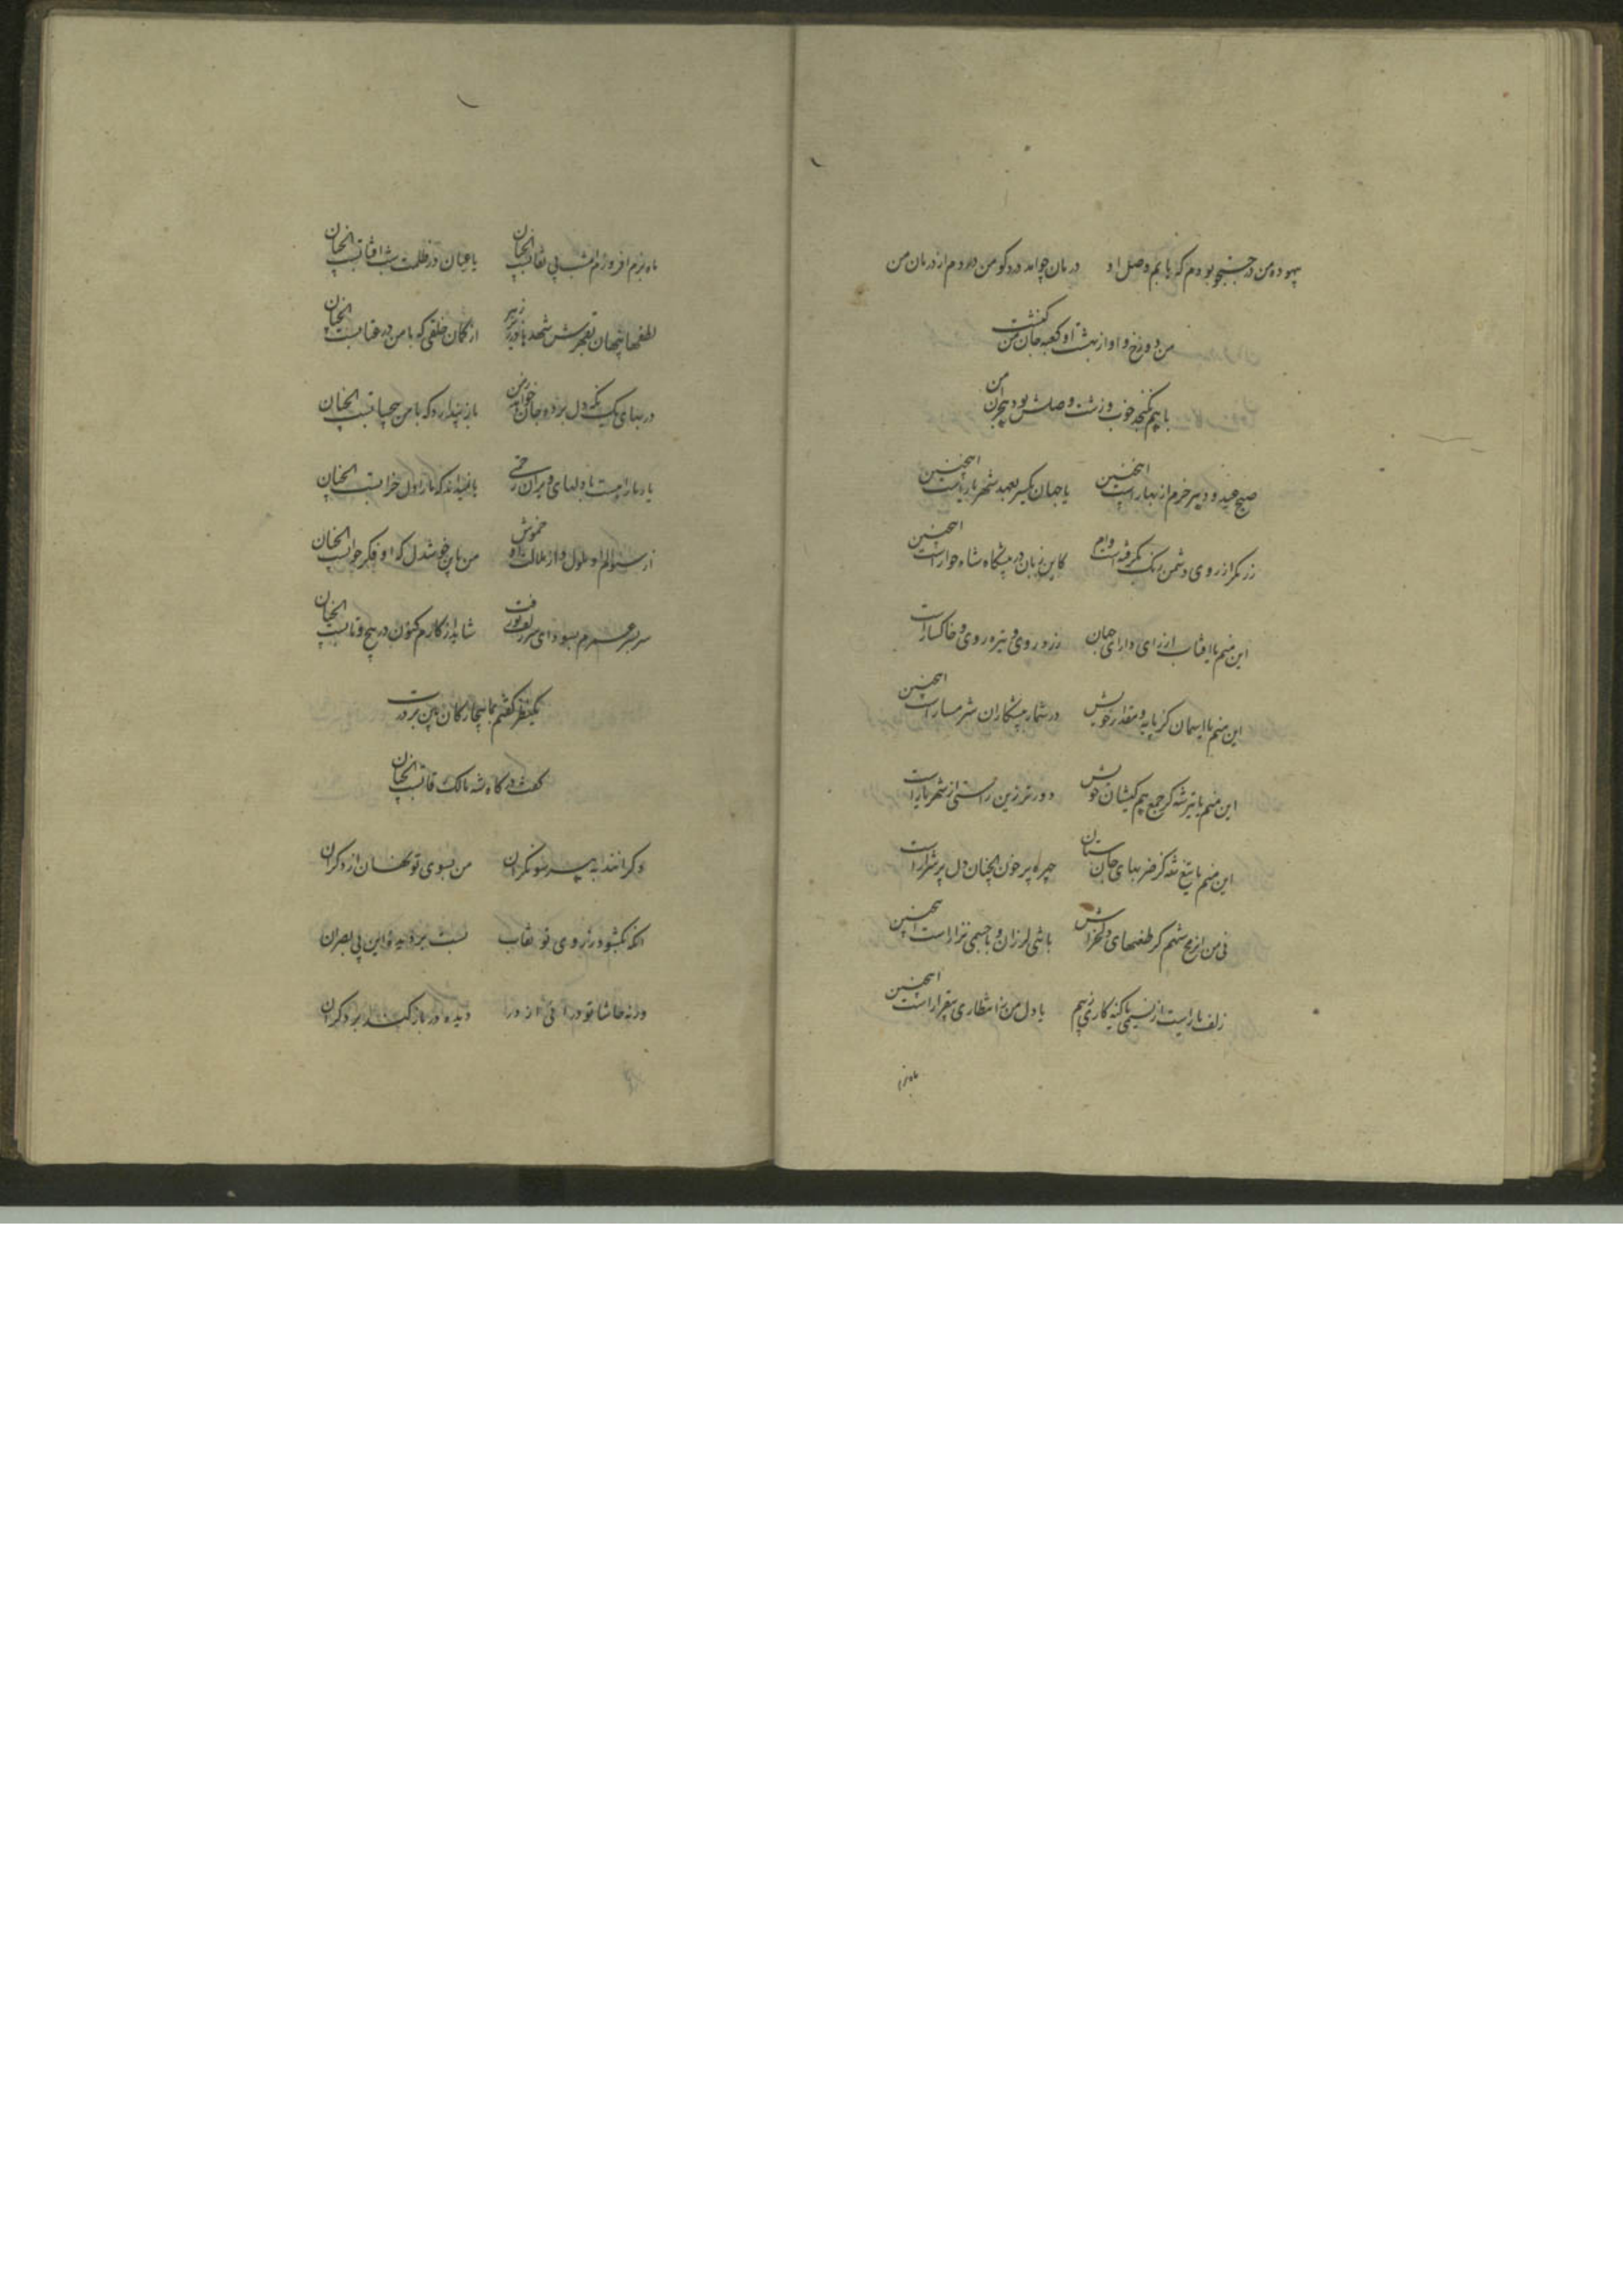 بیهوده من در جستجو بودم که یابم وصل او در مان چو آمد درد کو من در دم از درمان من
من دوزخ و او از بهشت او کعبه جان من کنشت
با هم نگنجد خوب و زشت وصلش بود هجران من
صبح عید و دیر خرم از بهار است اینچنین یا جهان یکسر بعهد شهریار است اینچنین
زر مگر از روی دشمن رنگ بگرفته است وام کاین زمان در پیشگاه شاه خوار است اینچنین
این منم یا آفتاب از رای دارای جهان زرد روی و تیره روی و خاکسار است
این منم یا آسمان کز پایه و مقدار خویش در شمار پیشکاران شرمسار است اینچنین
این منم یا تیر شه کز جمع هم کیشان خویش دورتر زین راستی از شهریار است
این منم یا تیغ شه کز ضربهای جان ستان چهره پر خون همچنان دل پر شرار است
نی من از رمح شهم کز طعنهای با تنی لرزان و با جسمی نزار است اینچنین
زلف یار است از نسیمی یا گنه کاری ز بیم یا دل من ز انتظاری بیقرار است اینچنین
ماه بزم
ماه بزم افروزم امشب بی نقابست آنچنان یا عیان در ظلمت شب آفتابست آنچنان
لطفها پنهان بقهرش شهد با زهر از گمان خلقی که با من در عتابست آنچنان
در بهای یک نگه دل برده و جان خواهد ز من باز پندارد که با من بیحسابست آنچنان
یا ندانند که از اول خرابست آنچنان
از سؤالم او ملول و از ملالت او خموش من باین خوشدل که او فکر جوابست آنچنان
سر بسر عمرم بسودای سر زلفت برفت شاید ار کارم کنون در پیچ و تابست آنچنان
یکنظر گفتم به بیچارگان بین بر درت
گفت درگاه شه مالک رقابست آنچنان
دگرانند بهر سو نگران من بسوی تو نهان از دگران
آنکه بگشود ز روی تو نقاب بست بر دیده این بی بصران
ور نه حاشا تو در آئی از در دیده در باز کند بر دگران